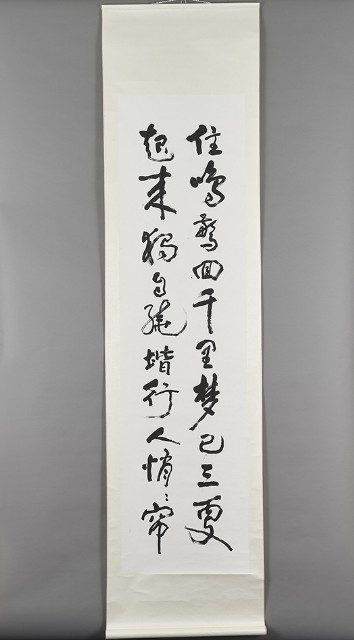 住鳴驚回千里梦已三更
起来獨自繞堦行人悄々帘